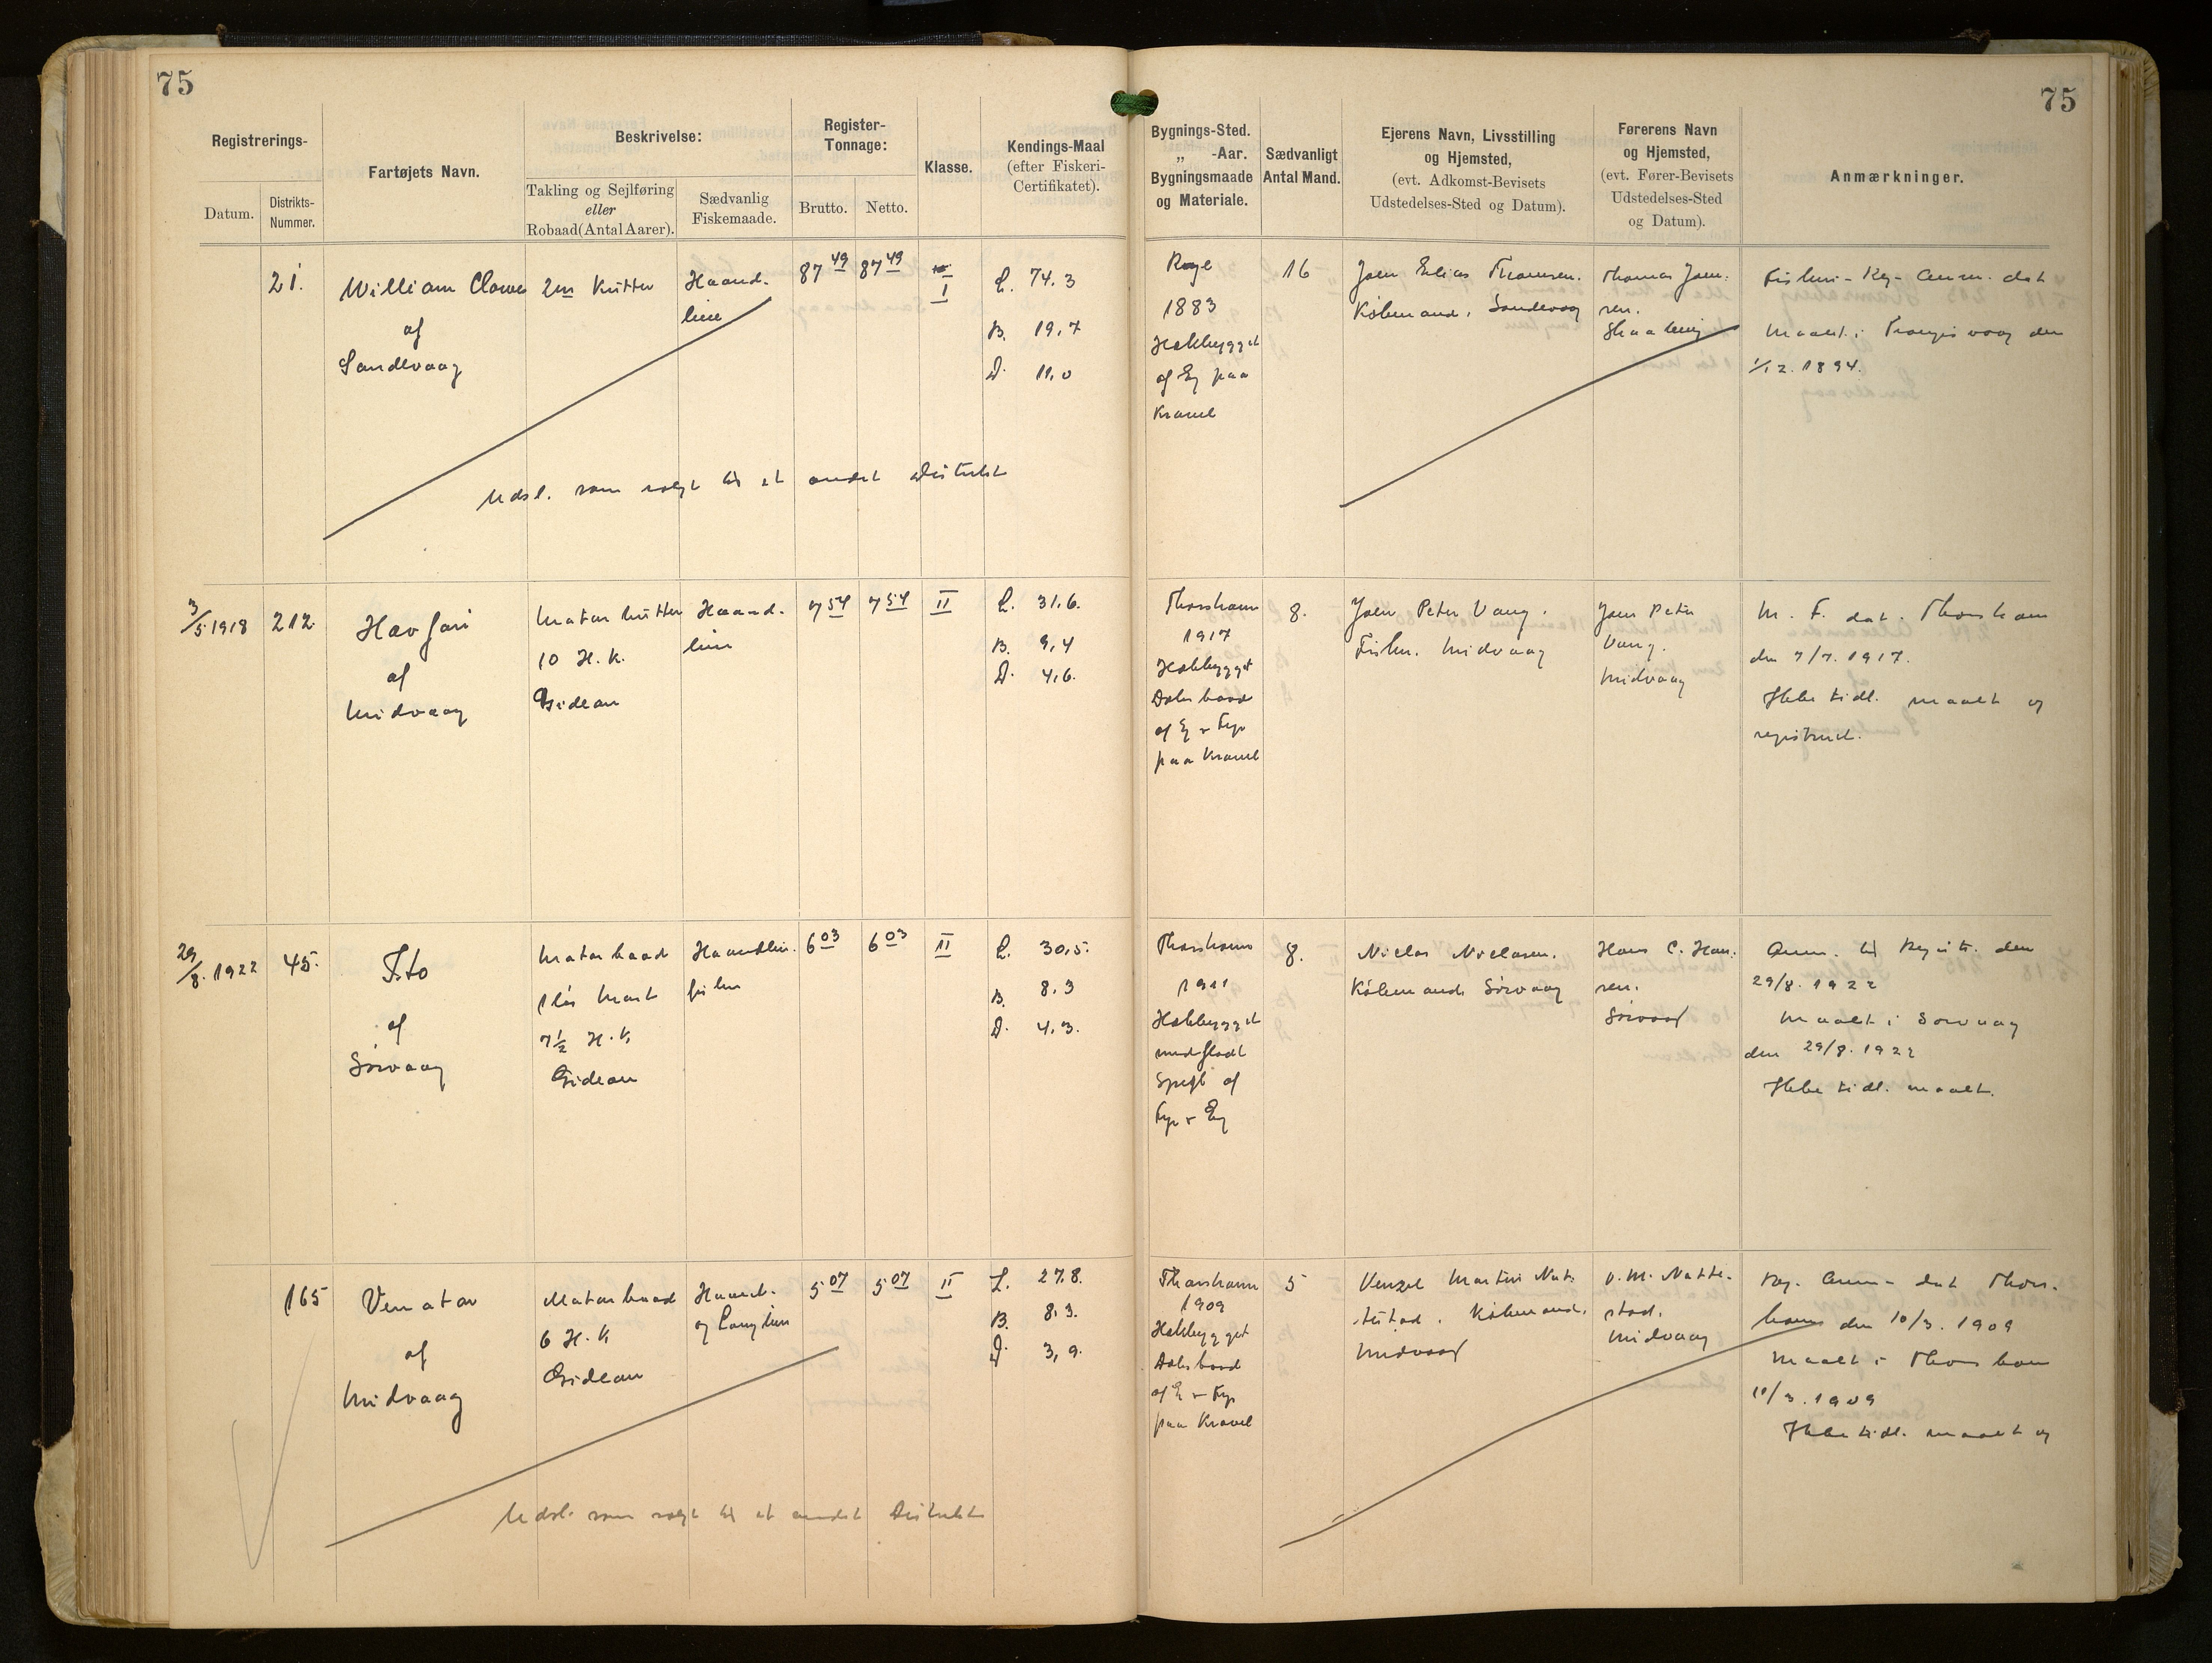 75
75
Registrerings-
Datum.
Distrikts-
Nummer.
Fartøjets Navn.
Beskrivelse:
Takling og Sejlføring
eller
Robaad (Antal Aarer).
Sædvanlig
Fiskemaade.
Register-
Tonnage:
Brutto.
Netto.
Klasse.
Kendings-Maal
(efter Fiskeri-
Certifikatet).
Bygnings-Sted.
„ -Aar.
Bygningsmaade
og Materiale.
Sædvanligt
Antal Mand.
Ejerens Navn, Livsstilling
og Hjemsted,
(evt. Adkomst-Bevisets
Udstedelses-Sted og Datum).
Førerens Navn
og Hjemsted,
(evt. Fører-Bevisets
Udstedelses-Sted
og Datum).
Anmærkninger.
21.
William Clowes
af
Sandevaag
2m Kutter
Haand-
line
87 49
87 49
I
L. 74.3
B. 19,7
D. 11,0
Udsl. som solgt til et andet Distrikt
Rye
1883
Hækbygget
af Eg paa
Kravel
16
Joen Elias Thomsen.
Købmand. Sandevaag
Thomas Joen-
sen.
Fiskeri-Reg-Anm. dat
Maalt i Trangisvaag den
1/12. 1894.
3/5 1918
212
Havfari
af
Midvaag
Motor Kutter
10 H.K.
Gideon
Haand-
line
7 54
7 54
II
L. 31.6.
B. 9,4
D. 4,6.
Thorshavn
1917
Hækbygget
Dæksbaad
af Eg & Fyr
paa Kravel
8.
Joen Peter Vang.
Fisker. Midvaag
Joen Peter
Vang.
Midvaag
M. F. dat. Thorshavn
den 7/7. 1917.
Ikke tidl. maalt og
registreret.
29/8. 1922
45.
Ito
af
Sørvaag
Motorbaad
1 løs Mast
7½ H.K.
Gideon
Haandline-
fisker
6 03
6 03
II
L. 30,5.
B. 8.3
D. 4,3.
Thorshavn
1911
Hækbygget
med fladt
Spejl af
Fyr & Eg
8.
Niclas Niclasen.
Købmand. Sørvaag
Hans C. Han-
sen.
Sørvaag
Anm. til Registr. den
29/8. 1922
Maalt i Sørvaag
den 29/8. 1922
Ikke tidl. maalt.
165
Venator
af
Midvaag
Motorbaad
6 H.K
Gideon
Haand-
og Langline
5 07
5 07
II
L. 27.8.
B. 8.3.
D. 3,9.
Udsl. som solgt til et andet Distrikt
Thorshavn
1909
Hækbygget
Dæksbaad
af Eg & Fyr
paa Kravel
5
Venzel Martin Nat-
testad. Købmand.
Midvaag
V. M. Natte-
stad.
Midvaag
Reg. Anm- dat Thors-
havn den 10/3. 1909
Maalt i Thorshavn
10/3. 1909
Ikke tidl. maalt og